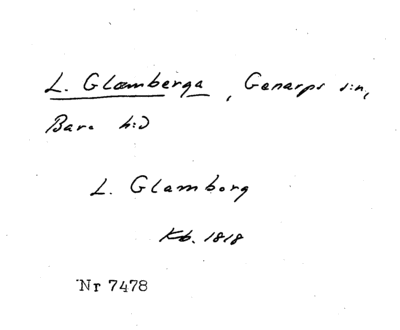 L. Glamberga, Genarps s:n,
Bara h:d
L. Glamborg
Kb. 1818
Nr 7478